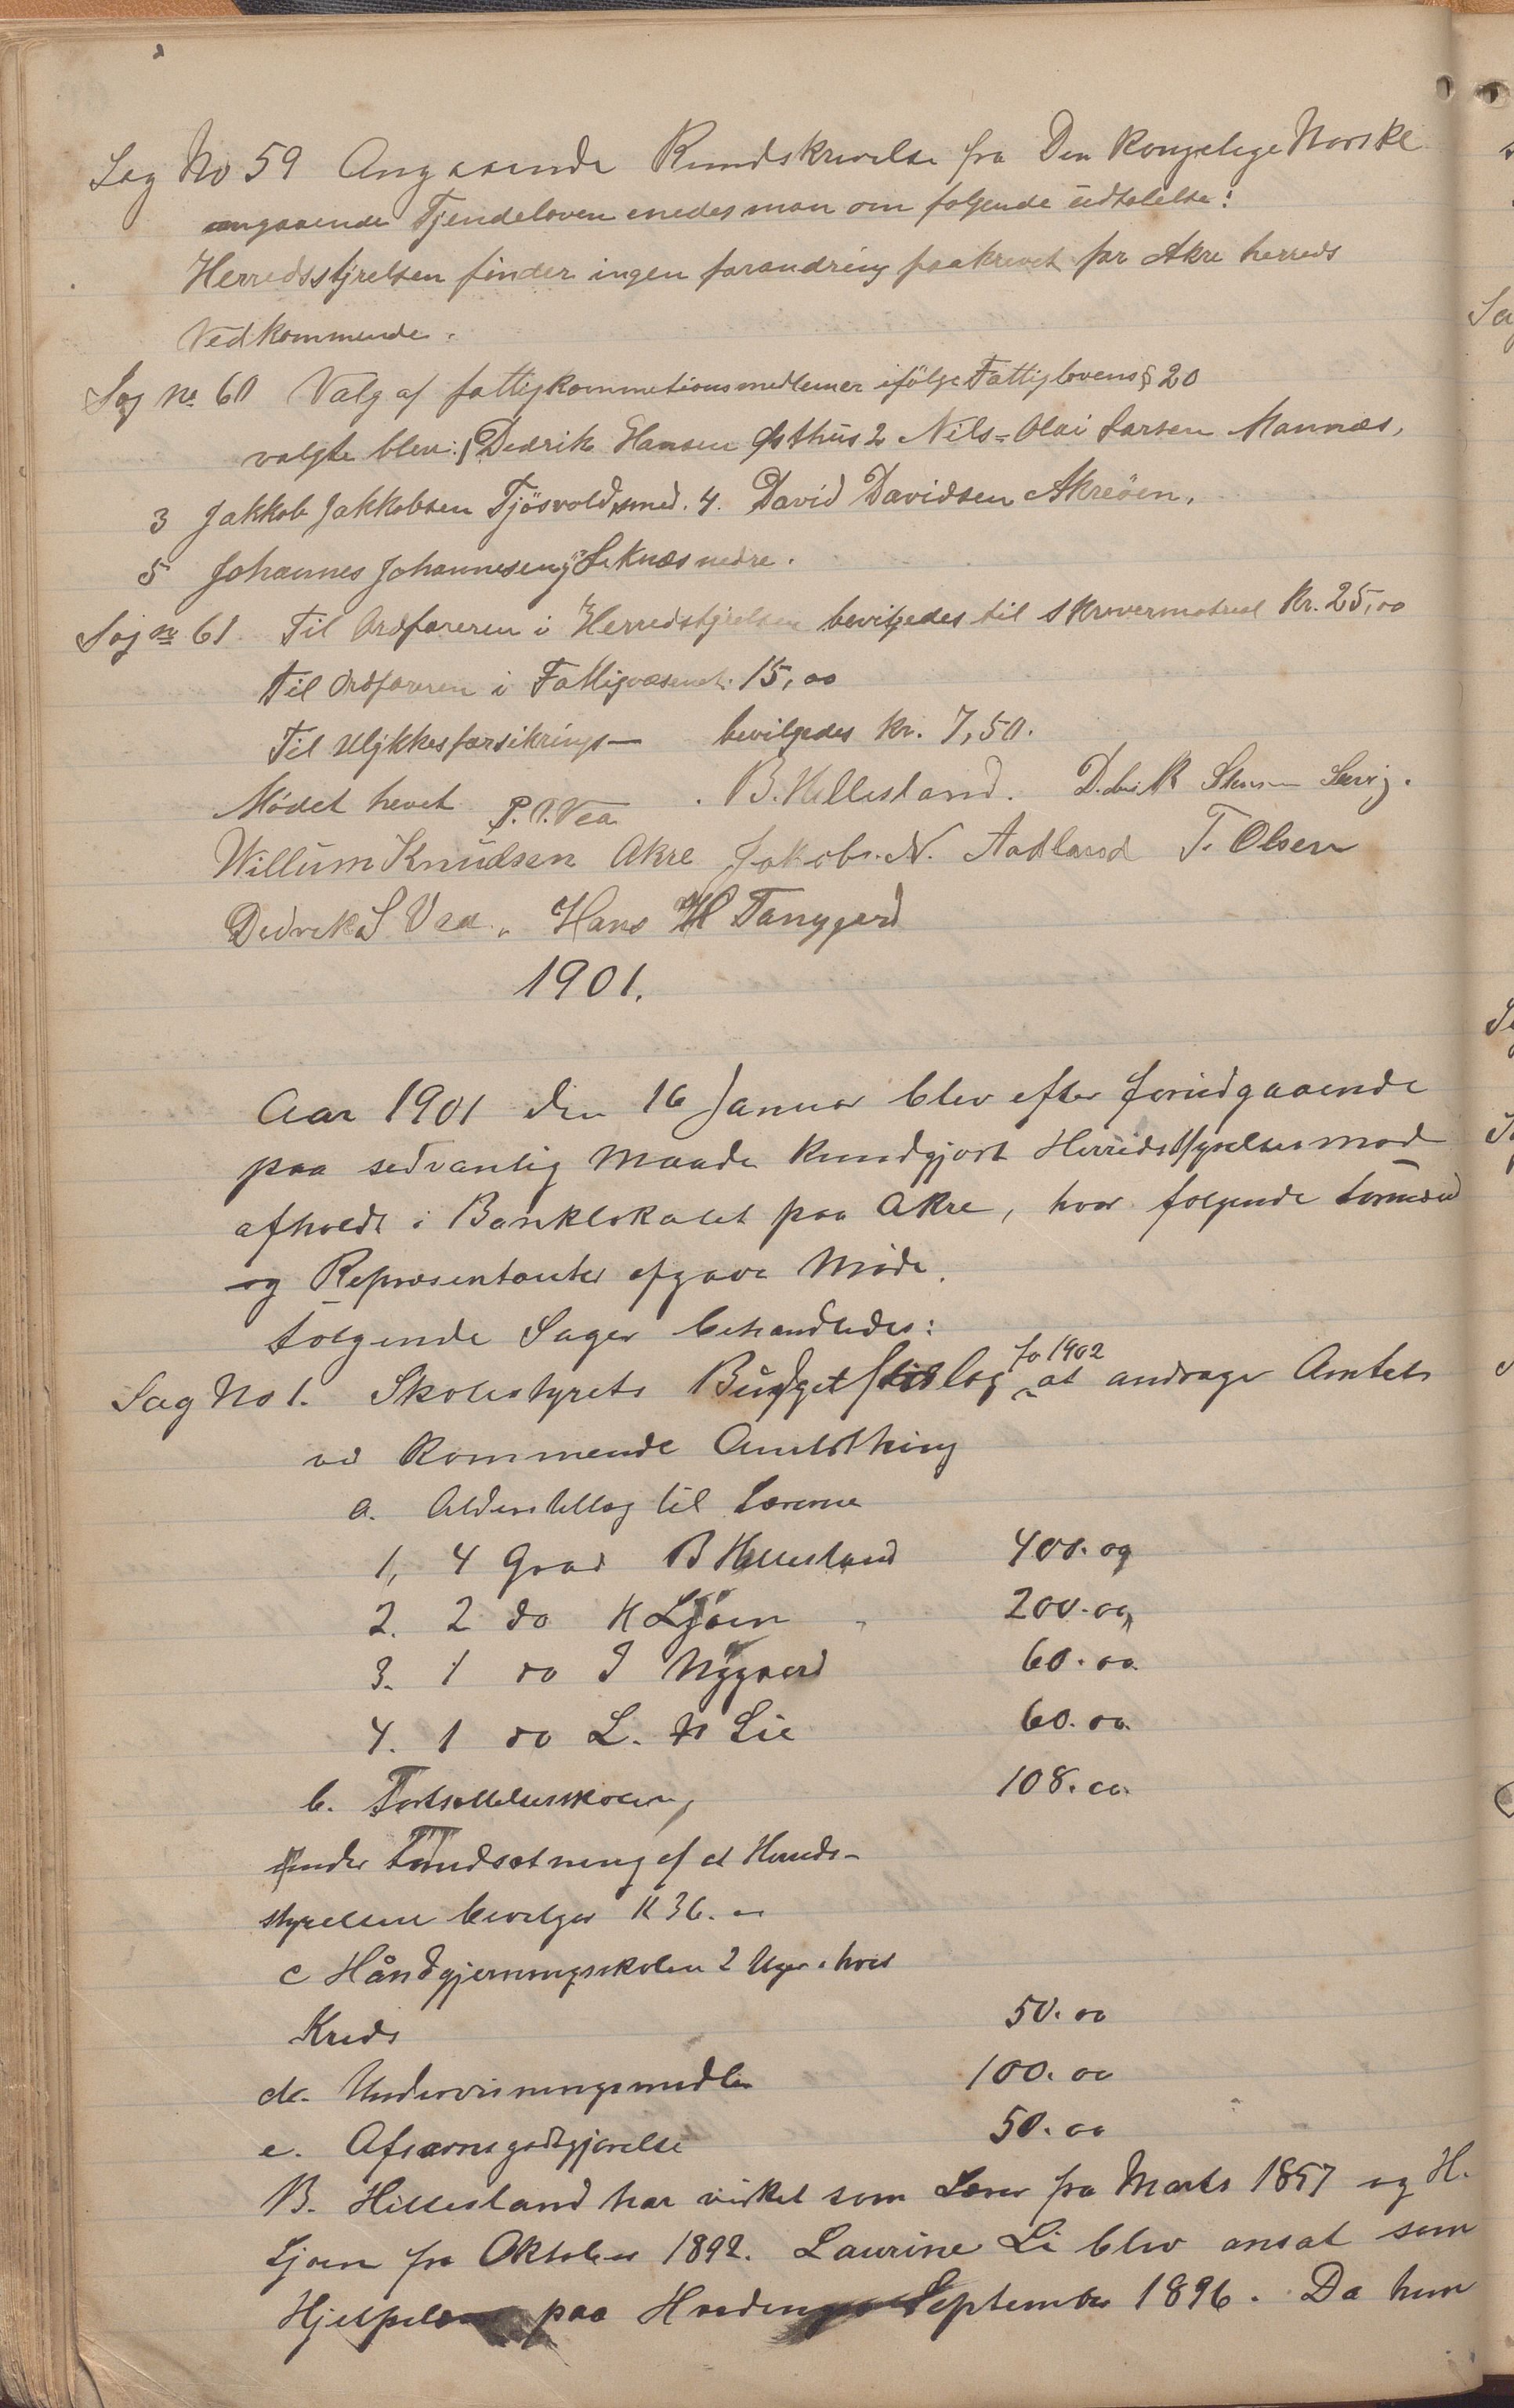 Sag No 59 Angaaende Rundskrivelse fra Den Kongelige Norske
angaaende Tjendeloven enedes man om følgende udtalelse:
Herredsstyrelsen finder ingen forandring paakrevet for Akre herreds
Vedkommende.
Sag No 60 Valg af fattigkommetionsmedlemer ifölge Fattiglovens § 20
valgte blev: 1 Dedrik Hansen Østhus 2 Nils-Olai Larsen Mannæs,
3 Jakkob Jakkobsen Tjösvold, 4. David Davidsen Akreöen,
5 Johannes Johannesen Liknæs nedre.
Sag No 61. Til Ordføreren i Herredstyrelsen bevilgedes til skrivermatrial Kr. 25,00
Til Ordføreren i Fattigvæsenet 15,00
Til Ulykkesforsikrings— bevilgedes Kr. 7,50.
Mødet hevet P.O. Vea. B. Hillesland. Didrik Stensen Sævig.
Willum Knudsen Akre Jakob. N. Aadland T. Olsen
Dedrik S Vea. Hans H Tanggard
1901.
Aar 1901 den 16 Januar blev efter forudgaaende
paa sedvanlig Maade kundgjort Herredsstyrelsesmøde
afholdt i Banklokalet paa Akre, hvor følgende Formænd
og Repræsentanter afgave Møde.
Følgende Sager behandledes:
Sag No 1. Skolestyrets Budgetforslag fo 1902 at andrage Amtets
ved kommende Amtsthing
a. Alderstillæg til Lærerne
1, 4 Grad B Hillesland 400.00
2. 2 do H Ljoen 200.00
3. 1 do I Nygaard 60.00
4. 1 do L. H Lie 60.00
b. Fortsættelsesskolen, 108.00
under Forudsætning af at Herreds-
styrelsen bevilger K 36.00
c Håndgjerningsskolen 2 Uger i hver
Kreds 50.00
d. Undervisningsmidler 100.00
e. Afsavnsgodtgjørelse 50.00
B. Hillesland har virket som Lærer fra Marts 1857 og H.
Ljoen fra Oktober 1892. Laurine Li blev ansat som
Hjelpelær paa September 1896. Da hun